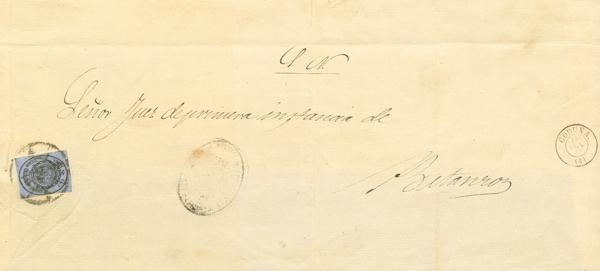 S. N.
Señor Juez de primera instancia de
Betanzos
CORUÑA
(4)